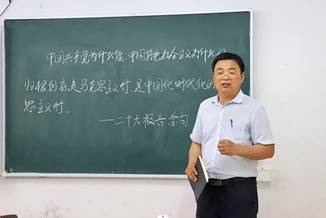 中国共产党为什么能，中国特色社会主义为什么
归根到底是马克思主义行，是中国化时代化的
思主义行
——二十大报告金句